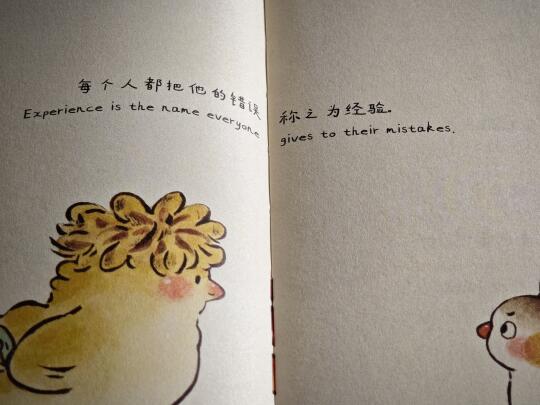 每个人都把他的错误称之为经验。
Experience is the name everyone gives to their mistakes.